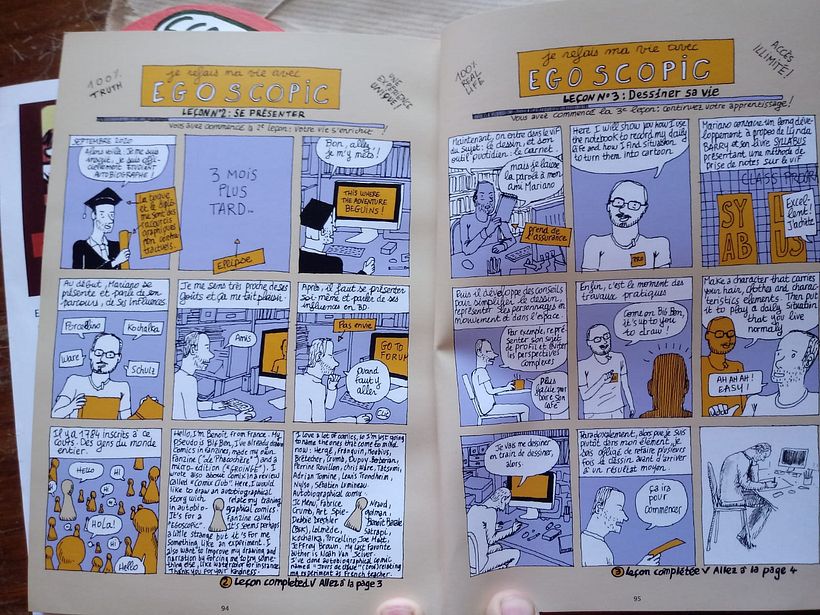 100%
TRUTH
je refais ma vie avec
EGOSCOPIC
UNE
EXPÉRIENCE
UNIQUE!
LEÇON N°2: SE PRÉSENTER
Vous avez commencé la 2e leçon: votre vie s'enrichit!
SEPTEMBRE 2020
Alors voilà. Je me suis
inscrit, je suis
officiellement étudiant
AUTOBIOGRAPHE!
La toque
et le diplô-
me sont des
raccourcis
graphiques
non contra-
ctuels.
3 MOIS
PLUS
TARD...
Ellipse
Bon, allez,
je m'y mets!
THIS WHERE
THE ADVENTURE
BEGUINS!
Au début, Mariano se
présente et parle de son
parcours, de ses influences.
Porcellino
Kochalka
Ware
Schulz
Je me sens très proche de ses
goûts et ça me fait plaisir.
Amis
Après, il faut se présenter
soi-même et parler de ses
influences en BD.
Pas envie
GO TO
FORUM
Quand
faut y
aller
Clic
Il y a 1784 inscrits à ce
cours. Des gens du monde
entier.
Hello
Hi
Hi
Hola!
Hi
Hello
Hello, I'm Benoit, from France. My
pseudo is Big Ben, I've already drawn
comics in fanzines, made my own
fanzine ("le Phacochère") and a
micro-edition ("GROINGE"). I
wrote also about comix in a review
called "Comix Club". Here, I would
like to draw an autobiographical
story wich relate my training
in autobio-graphical comics.
It's for a fanzine called
"EGOSCOPIC". It's seems perhaps
a little strange but it's for me
something like an experiment. I
also want to improve my drawing and
narration by forcing me to try some-
thing else, like watercolor for instance.
Thank you for your kindness.
I love a lot of comics, so I'm just going
to name the ones that come to mind
now: Hergé, Franquin, Moebius,
Bretécher, Crumb, Dupuy Berberian,
Perrine Rouillon, Chris Ware, Tatsumi,
Adrian Tomine, Lewis Trondheim,
Nylso, Sébastien Lumineau
Autobiographical comix:
JC Menu, Fabrice Neaud,
Crumb, Art Spie-gelman,
Debbie Drechsler
Satrapi,
Kochalka, Porcellino, Joe Matt,
Jeffrey Brown. My last favorite
author is Noah Van Sciver
② Leçon completed √ Allez à la page 3
94
100%
REAL
LIFE
je refais ma vie avec
EGOSCOPIC
ACCÈS
ILLIMITÉ!
LEÇON N°3: Dessiner sa vie
Vous avez commencé la 3e leçon: continuez votre apprentissage!
Maintenant, on entre dans le vif
du sujet: le dessin, et son
outil quotidien: le carnet.
mais je laisse
la parole à mon
ami Mariano
prend de
l'assurance
Here I will show you how I use
the notebook to record my daily
life and how I find situation
to turn them into cartoon
PRO
Mariano continue un long déve-
loppement à propos de Lynda
BARRY et son livre SYLLABUS
présentant une méthode de
prise de notes sur le vif
SY
AB
US
Excel-
lent!
J'achète
Puis il développe des conseils
pour simplifier le dessin,
représenter les personnages en
mouvement et dans l'espace.
Par exemple, repré-
senter son sujet
de profil et éviter
les perspectives
complexes
Plus
facile pour
boire son
café
Enfin, c'est le moment des
travaux pratiques
Come on Big Ben,
it's up to you
to draw!
Make a character that carries
your hair, clothes and charac-
teristics elements. Then put
it to play a daily situation
that you live
normally
AH AH AH!
EASY!
Je vais me dessiner
en train de dessiner,
alors.
Paradoxalement, alors que je suis
plutôt dans mon élément, je
suis obligé de refaire plusieurs
fois le dessin, avant d'arriver
à un résultat moyen.
ça ira
pour
commencer
③ Leçon complétée √ Allez à la page 4
95